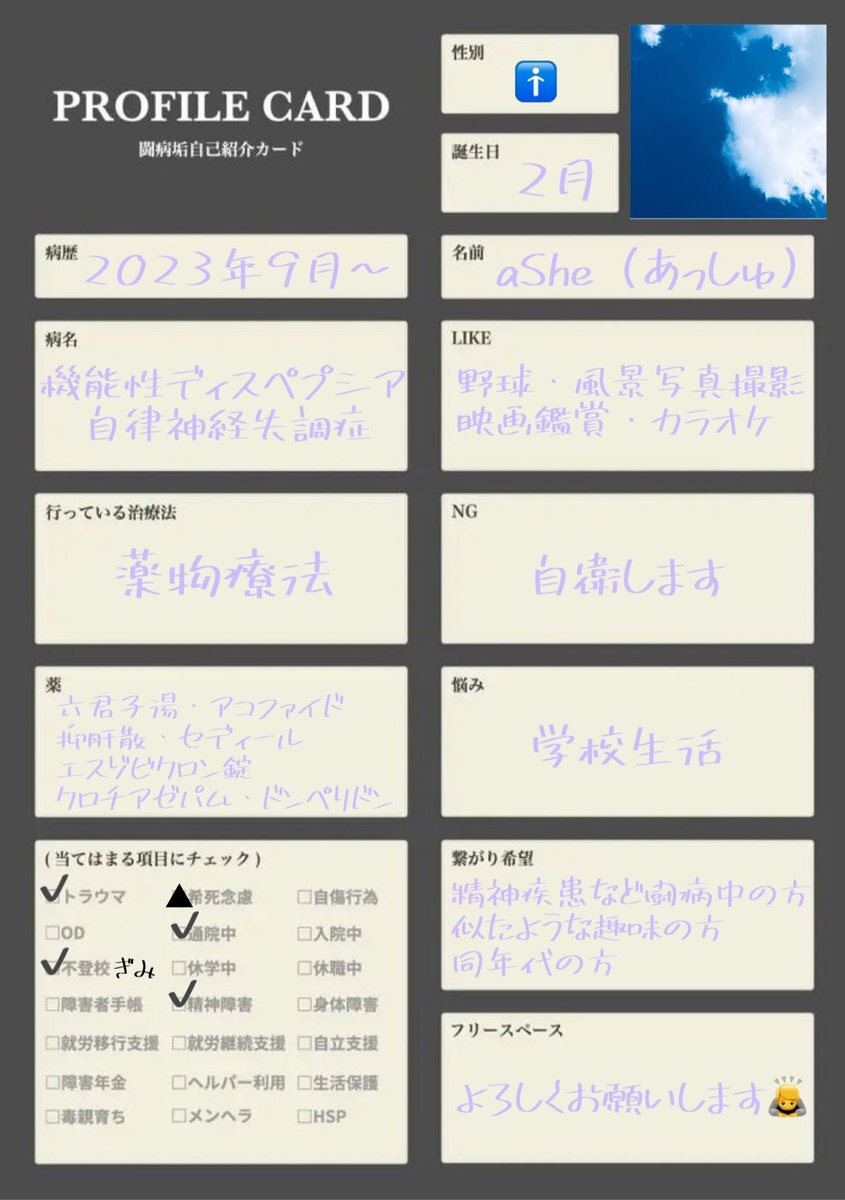 PROFILE CARD
闘病垢自己紹介カード
性別
誕生日
2月
病歴
2023年9月〜
名前
aShe（あっしゅ）
病名
機能性ディスペプシア
自律神経失調症
LIKE
野球・風景写真撮影
映画鑑賞・カラオケ
行っている治療法
薬物療法
NG
自衛します
薬
六君子湯・アコファイド
抑肝散・セディール
エスゾピクロン錠
クロチアゼパム・ドンペリドン
悩み
学校生活
(当てはまる項目にチェック)
✓トラウマ ▲希死念慮 □自傷行為
□OD ✓通院中 □入院中
✓不登校 ぎみ □休学中 □休職中
□障害者手帳 ✓精神障害 □身体障害
□就労移行支援 □就労継続支援 □自立支援
□障害年金 □ヘルパー利用 □生活保護
□毒親育ち □メンヘラ □HSP
繋がり希望
精神疾患など闘病中の方
似たような趣味の方
同年代の方
フリースペース
よろしくお願いします🙇